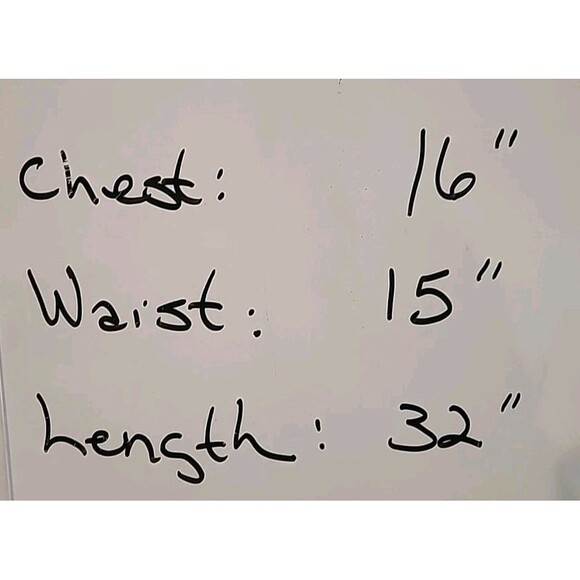 Chest: 16"
Waist: 15"
Length: 32"